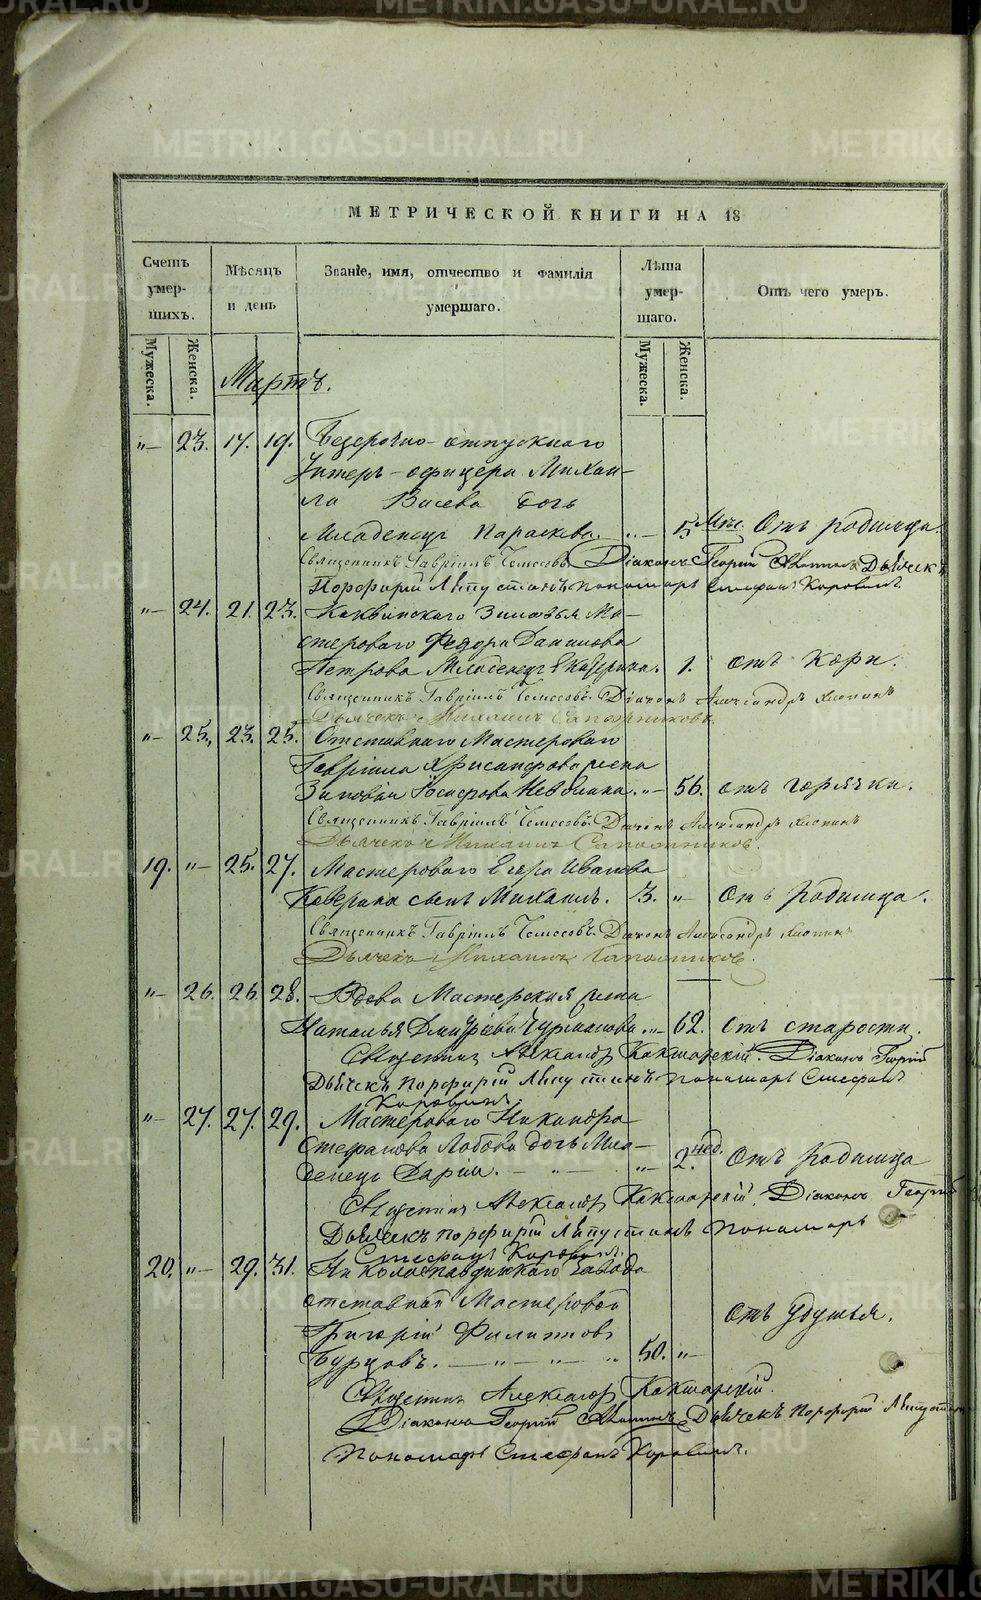 МЕТРИЧЕСКОЙ КНИГИ НА 18
Счетъ умер- шихъ.
Мѣсяцъ и день
Званіе, имя, отчество и фамилія умершаго.
Лѣта умер- шаго.
Отъ чего умеръ.
Мужеска. Женска.
Мужеска. Женска.
Мартъ.
„— 23. 17. 19. Безсрочно-отпускнаго
Унтеръ-офицера Михаи-
ла Васева дочь
Младенецъ Параскева. „— 5 Мѣс. Отъ родимца.
Священникъ Гавріилъ Діаконъ Георгій Дьячекъ
Порфирій Лапустинъ пономарь Стефанъ Коровинъ
„— 24. 21. 23. Каквинскаго Зимовья Ма-
стероваго Федора Данилова
Петрова Младенецъ Екатерина. 1. отъ кори.
Священникъ Гавріилъ Діаконъ Александръ
Дьячекъ Михаилъ Сапожниковъ.
„— 25. 23. 25. Отставнаго Мастероваго
Гавріила Хрисанфова жена
Зиновія Іосифова „— 56. отъ горячки.
Священникъ Гавріилъ Діаконъ Александръ
Дьячекъ Михаилъ Сапожниковъ.
19. „— 25. 27. Мастероваго Егора Иванова
Каверина сынъ Михаилъ. 3. „— Отъ родимца.
Священникъ Гавріилъ Діаконъ Александръ
Дьячекъ Михаилъ Сапожниковъ.
„— 26. 26. 28. Вдова Мастерская жена
Наталья Дмитріева „— 62. Отъ старости.
Священникъ Александръ Кокшарскій. Діаконъ Георгій
Дьячекъ Порфирій Лапустинъ Пономарь Стефанъ
Коровинъ.
„— 27. 27. 29. Мастероваго Никандра
Стефанова Лобова дочь Мла-
денецъ Дарія. „— 2. нед. Отъ родимца
Священникъ Александръ Кокшарскій Діаконъ Георгій
Дьячекъ Порфирій Лапустинъ Пономарь
Стефанъ Коровинъ.
20. „— 29. 31. Николаепавдинскаго завода
отставной Мастеровой
Григорій Филиповъ
Бурцовъ. 50. „— отъ удушья.
Священникъ Александръ Кокшарскій.
Діаконъ Георгій Дьячекъ Порфирій Лапустинъ
Пономарь Стефанъ Коровинъ.
METRIKI.GASO-URAL.RU